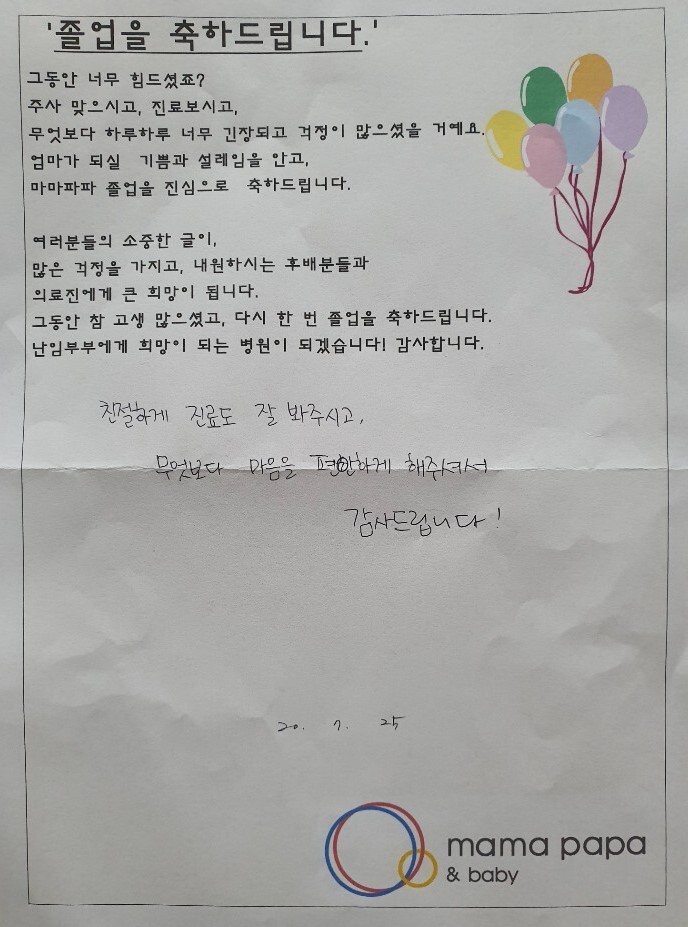 '졸업을 축하드립니다.'
그동안 너무 힘드셨죠?
주사 맞으시고, 진료보시고,
무엇보다 하루하루 너무 긴장되고 걱정이 많으셨을 거예요.
엄마가 되실 기쁨과 설레임을 안고,
마마파파 졸업을 진심으로 축하드립니다.
여러분들의 소중한 글이,
많은 걱정을 가지고, 내원하시는 후배분들과
의료진에게 큰 희망이 됩니다.
그동안 참 고생 많으셨고, 다시 한 번 졸업을 축하드립니다.
난임부부에게 희망이 되는 병원이 되겠습니다! 감사합니다.
친절하게 진료도 잘 봐주시고,
무엇보다 마음을 편안하게 해주셔서
감사드립니다!
20. 7. 25
mama papa
& baby